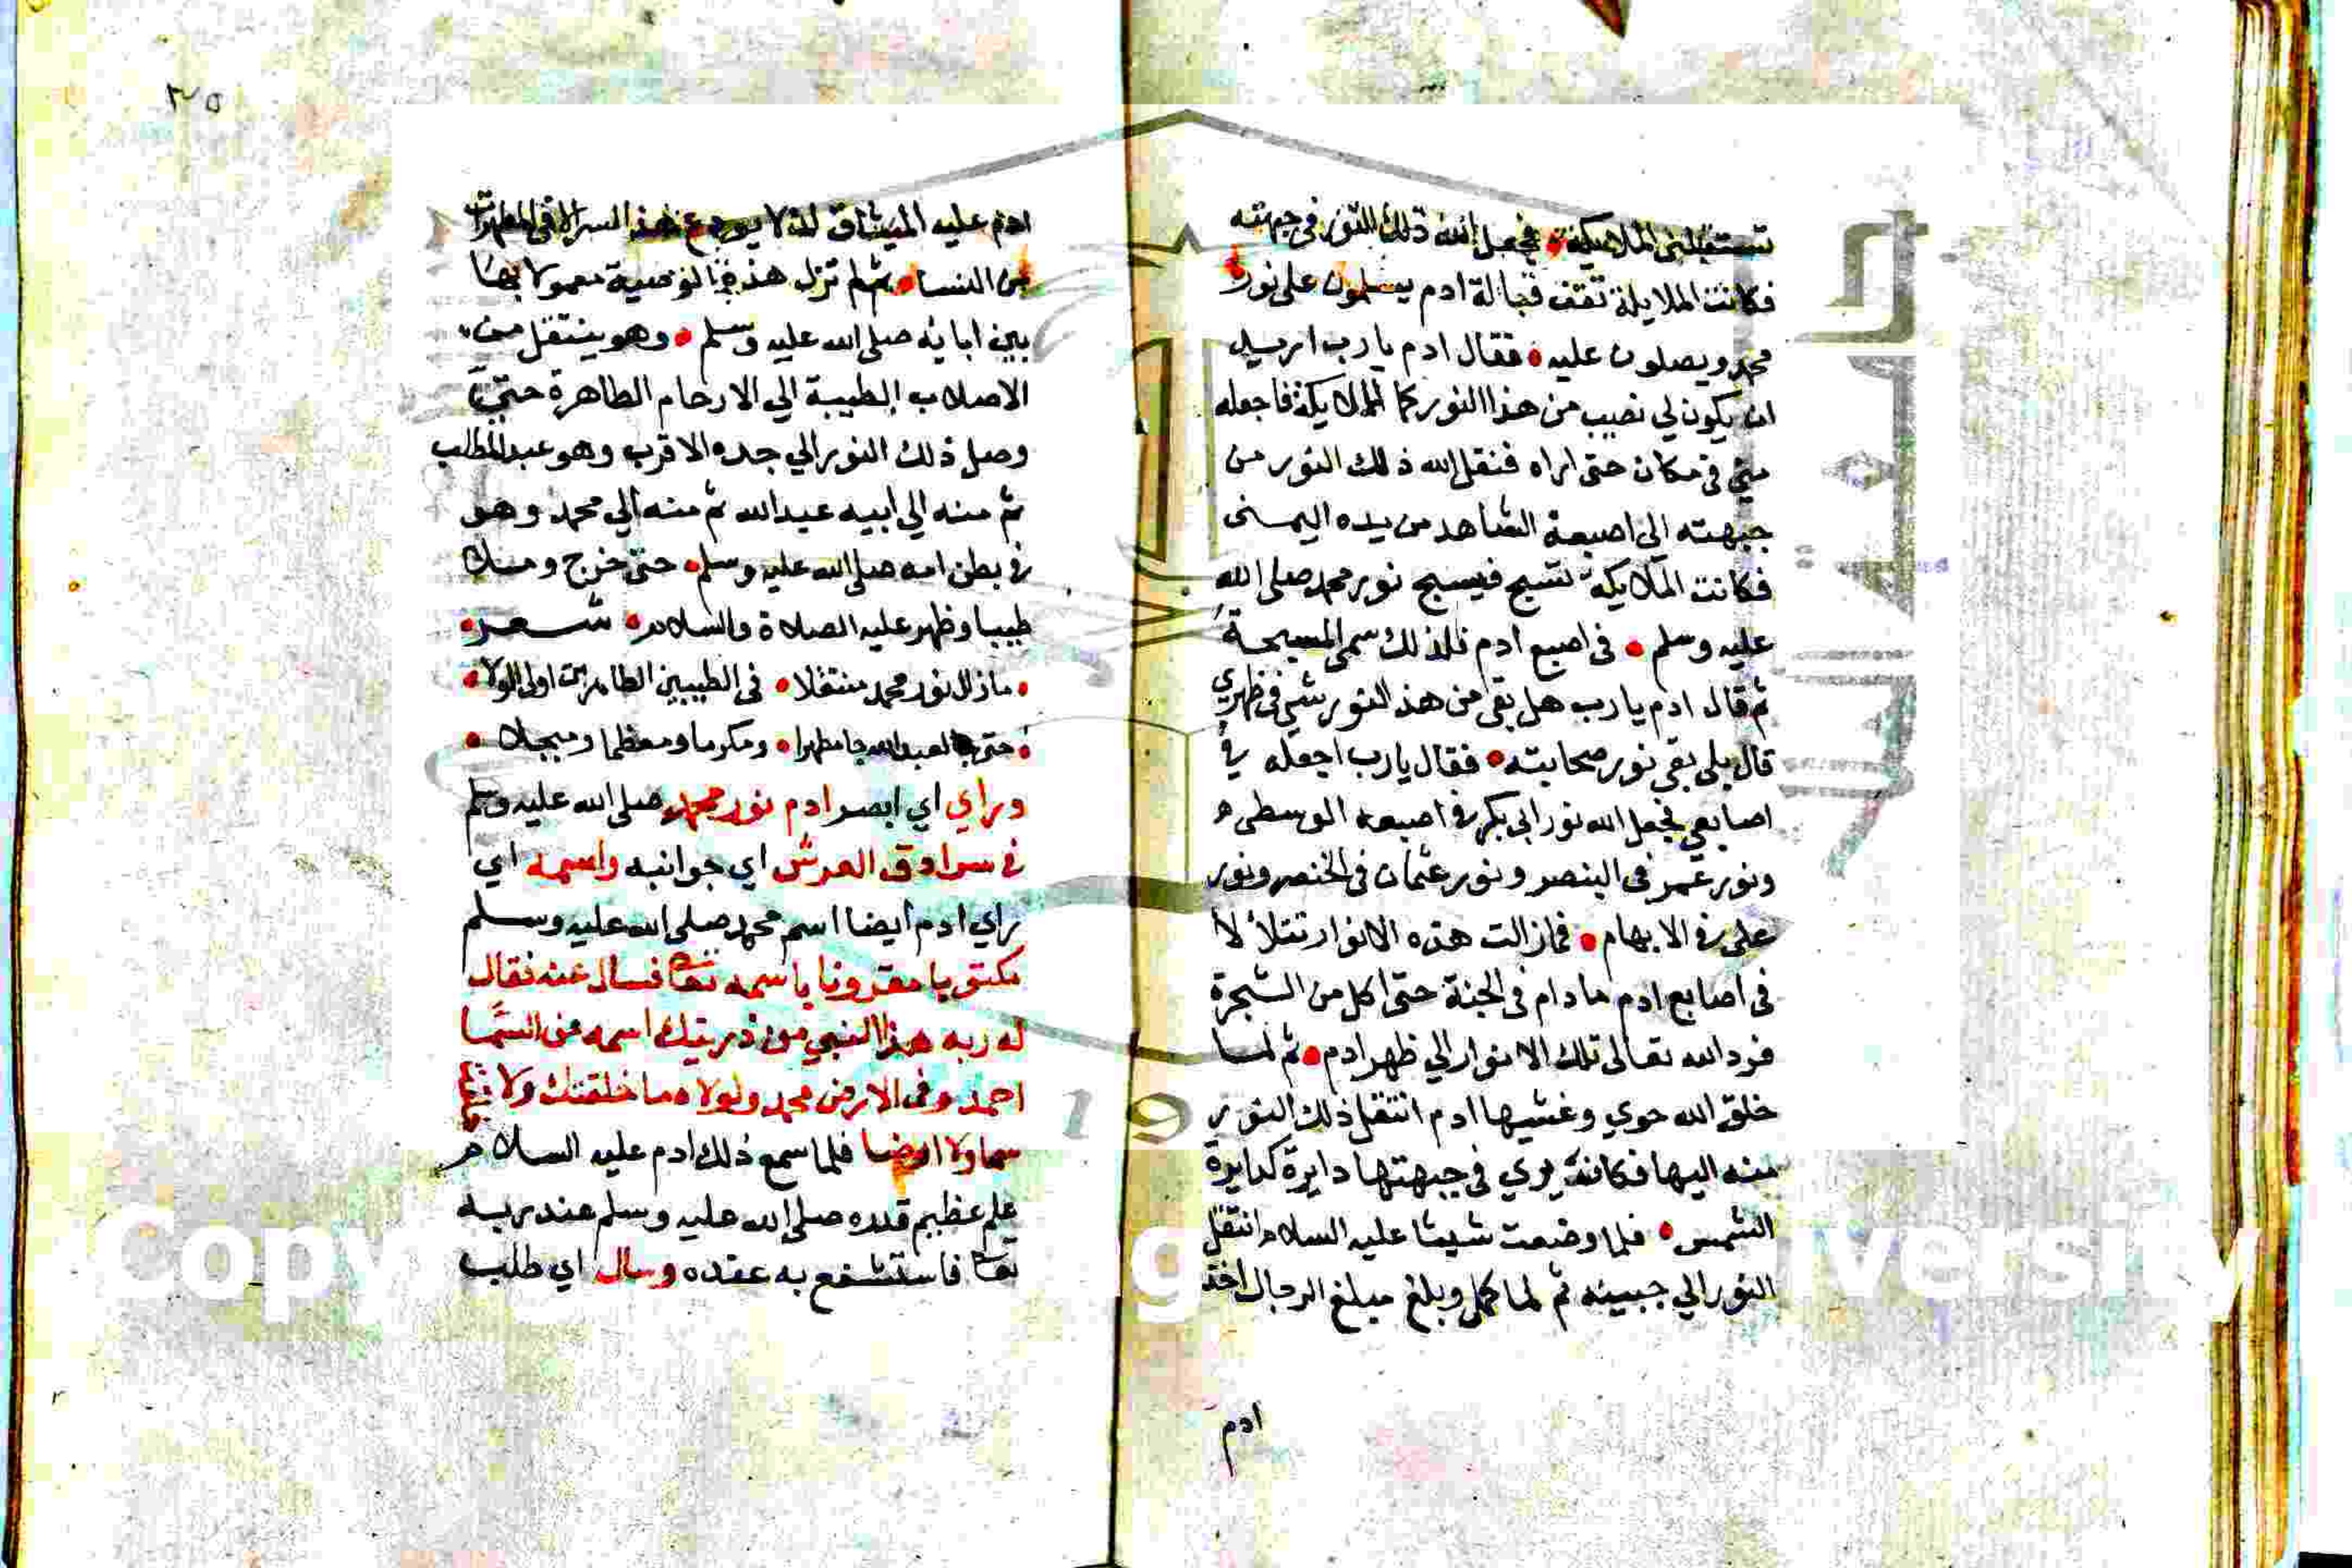 تستقبلني الملايكة • فجعل الله ذلك النور في جبهته
فكانت الملايكة تقف قبالة ادم يسلمون على نور
محمد ويصلون عليه • فقال ادم يا رب اريد
ان يكون لي نصيب من هذا النور كما للملايكة فاجعله
مني في مكان حتى اراه فنقل الله ذلك النور من
جبهته الى اصبعه الشاهد من يده اليمنى
فكانت الملايكة تسبح فيسبح نور محمد صلى الله
عليه وسلم • في اصبع ادم فلذلك سمى المسبحة
ثم قال ادم يا رب هل بقي من هذ النور شي في ظهري
قال بلى بقي نور صحابته • فقال يا رب اجعله في
اصابعي فجعل الله نور ابي بكر في اصبعه الوسطى
ونور عمر في البنصر ونور عثمان في الخنصر ونور
على في الابهام • فمازالت هذه الانوار تتلألأ
في اصابع ادم مادام في الجنة حتى اكل من الشجرة
فرد الله تعالى تلك الانوار الي ظهر ادم • ثم لما
خلق الله حوي وغشيها ادم انتقل ذلك النور
منه اليها فكانت يري في جبهتها دايرة كدايرة
الشمس • فلما وضعت شيثا عليه السلام انتقل
النور الي جبينه ثم لما كمل وبلغ مبلغ الرجال اخذ
ادم
٢٥
ادم عليه الميثاق انه لا يودع هذا السر الا في المطهرات
من النسا • ثم لم تزل هذه الوصية معمولا بها
بين ابايه صلى الله عليه وسلم • وهو ينتقل من
الاصلاب الطيبة الي الارحام الطاهرة حتى
وصل ذلك النور الي جده الاقرب وهو عبد المطلب
ثم منه الي ابيه عبد الله ثم منه الي محمد وهو
في بطن امه صلى الله عليه وسلم • حتى خرج ومنك
طيبا وظهر عليه الصلاة والسلام • شعر •
• مازال نور محمد متنقلا • في الطيبين الطاهرين اولى الولا •
• حتى لعبد الله جا مطهرا • ومكرما ومعظما ومبجلا •
وراي اي ابصر ادم نور محمد صلى الله عليه وسلم
في سرادق العرش اي جوانبه واسمه اي
راي ادم ايضا اسم محمد صلى الله عليه وسلم
مكتوبا مقرونا باسمه تعا فسال عنه فقال
له ربه هذا النبي من ذريتك اسمه في السما
احمد وفي الارض محمد ولولاه ما خلقتك ولا
سما ولا ارضا فلما سمع ذلك ادم عليه السلام
علم عظيم قدره صلى الله عليه وسلم عند ربه
تعا فاستشفع به عنده وسال اي طلب